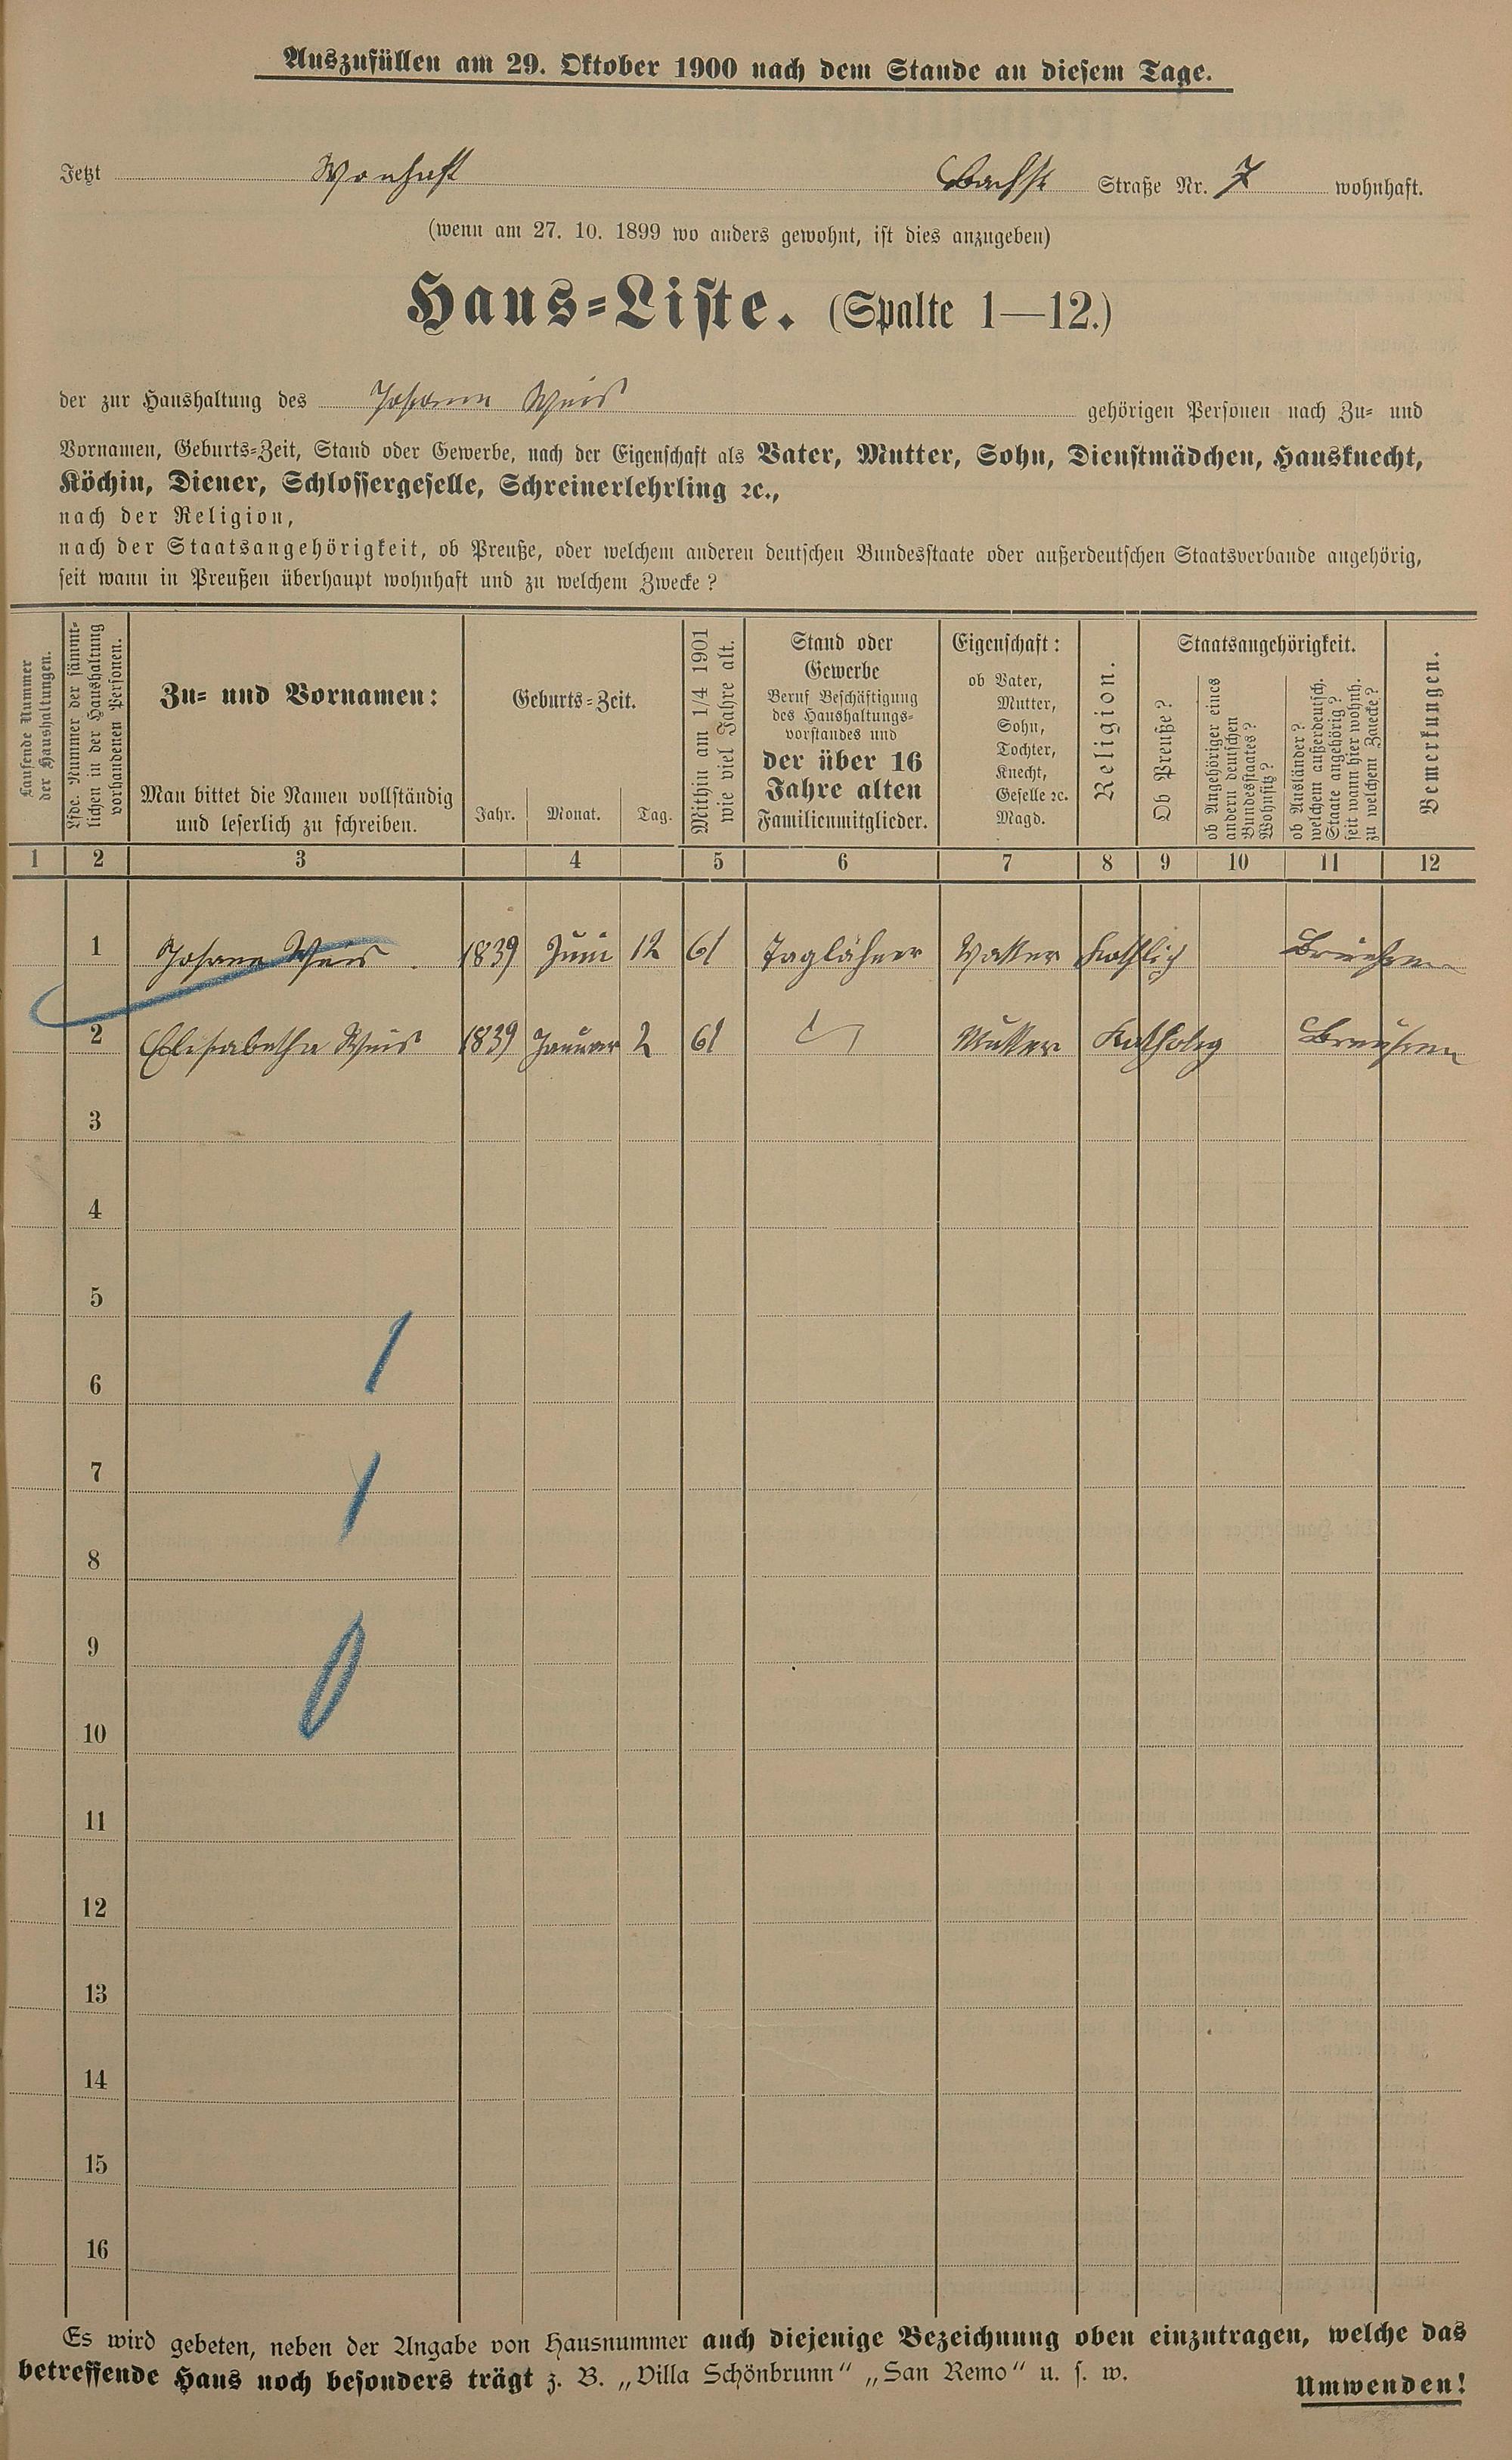 Auszufüllen am 29. Oktober 1900 nach dem Stande an diesem Tage.
Jetzt Wonhaft Bachst Straße Nr. 7 wohnhaft.
(wenn am 27. 10. 1899 wo anders gewohnt, ist dies anzugeben)
Haus-Liste. (Spalte 1—12.)
der zur Haushaltung des Johann Weis gehörigen Personen nach Zu- und
Vornamen, Geburts-Zeit, Stand oder Gewerbe, nach der Eigenschaft als Vater, Mutter, Sohn, Dienstmädchen, Hausknecht,
Köchin, Diener, Schlossergeselle, Schreinerlehrling ꝛc.,
nach der Religion,
nach der Staatsangehörigkeit, ob Preuße, oder welchem anderen deutschen Bundesstaate oder außerdeutschen Staatsverbande angehörig,
seit wann in Preußen überhaupt wohnhaft und zu welchem Zwecke?
Laufende Nummer
der Haushaltungen.
Lfde. Nummer der sämmt-
lichen in der Haushaltung
vorhandenen Personen.
Zu- und Vornamen:
Man bittet die Namen vollständig
und leserlich zu schreiben.
Geburts-Zeit.
Jahr. Monat. Tag.
Mithin am 1/4 1901
wie viel Jahre alt.
Stand oder
Gewerbe
Beruf Beschäftigung
des Haushaltungs-
vorstandes und
der über 16
Jahre alten
Familienmitglieder.
Eigenschaft:
ob Vater,
Mutter,
Sohn,
Tochter,
Knecht,
Geselle ꝛc.
Magd.
Religion.
Staatsangehörigkeit.
Ob Preuße?
ob Angehöriger eines
andern deutschen
Bundesstaates?
Wohnsitz?
ob Ausländer?
welchem außerdeutsch.
Staate angehörig?
seit wann hier wohnh.
zu welchem Zwecke?
Bemerkungen.
1 2 3 4 5 6 7 8 9 10 11 12
1 Johann Weis 1839 Juni 12 61 Taglähner Vatter
2 Elisabetha Weis 1839 Januar 2 61 Mutter
3
4
5
6
7
8
9
10
11
12
13
14
15
16
Es wird gebeten, neben der Angabe von Hausnummer auch diejenige Bezeichnung oben einzutragen, welche das
betreffende Haus noch besonders trägt z. B. „Villa Schönbrunn“ „San Remo“ u. s. w.
Umwenden!